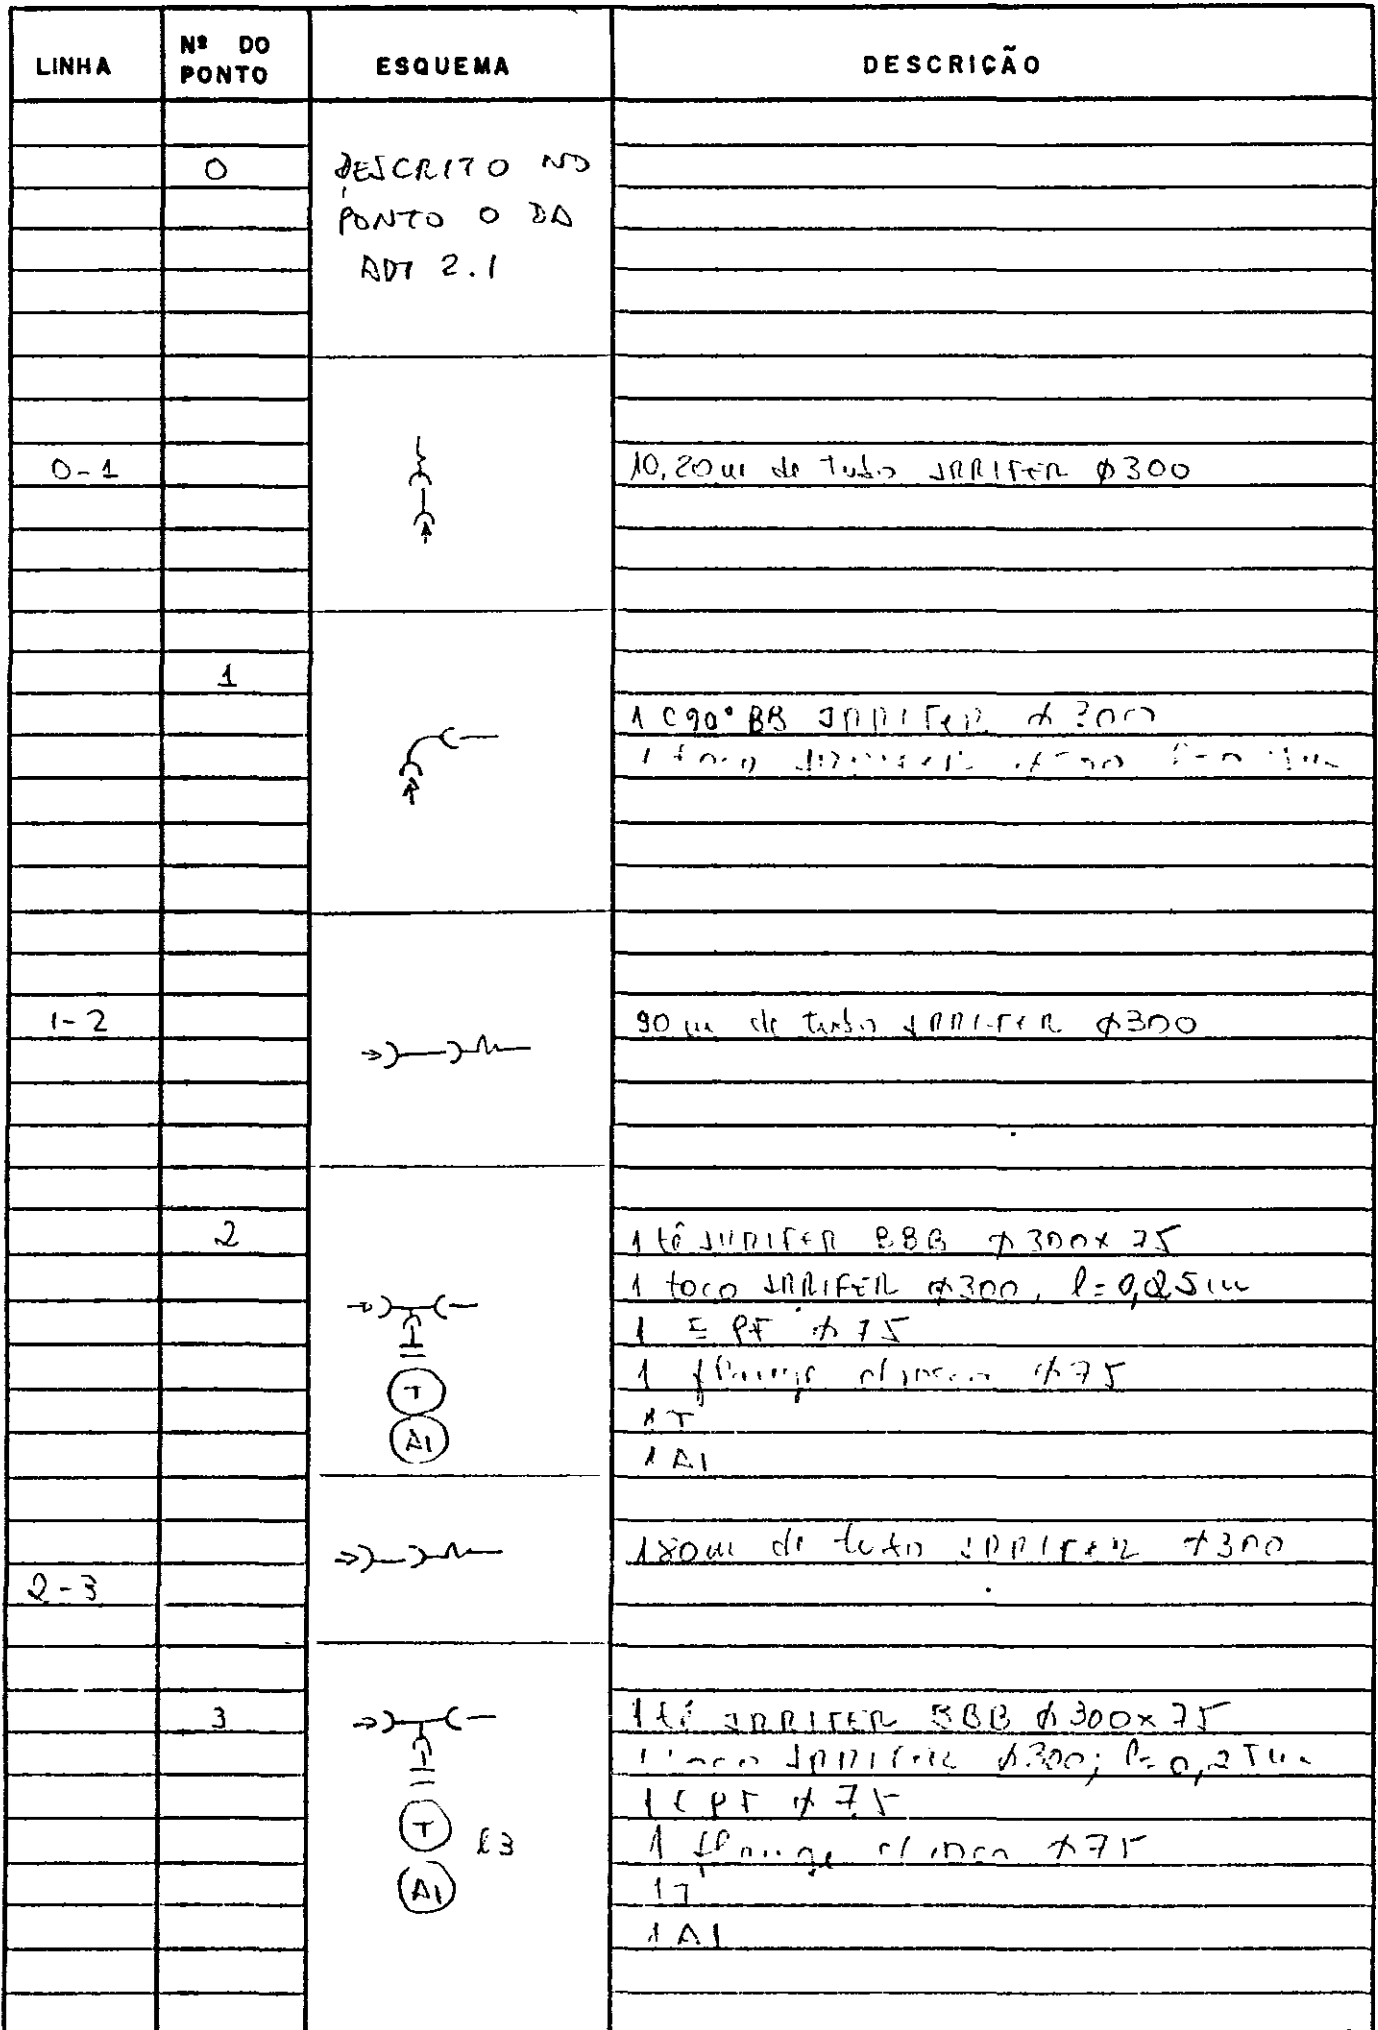 LINHA
Nº DO PONTO
ESQUEMA
DESCRIÇÃO
0
DESCRITO NO
PONTO O DA
ADT 2.1
0-1
10,20m de tubo IRRIFER ϕ300
1
1 C90° BB IRRIFER ϕ 300
1 toco IRRIFER ϕ300
1-2
90 m de tubo IRRIFER ϕ300
2
1 tê IRRIFER BBB ϕ 300x75
1 toco IRRIFER ϕ300, l=0,25m
1 E PF ϕ 75
1 flange ϕ75
T
1 T
AI
1 AI
180m de tubo IRRIFER ϕ300
2-3
3
1 tê IRRIFER BBB ϕ300x75
1 toco IRRIFER ϕ300; l=0,25m
1 E PF ϕ 75
T
1 flange ϕ75
AI
1 T
1 AI